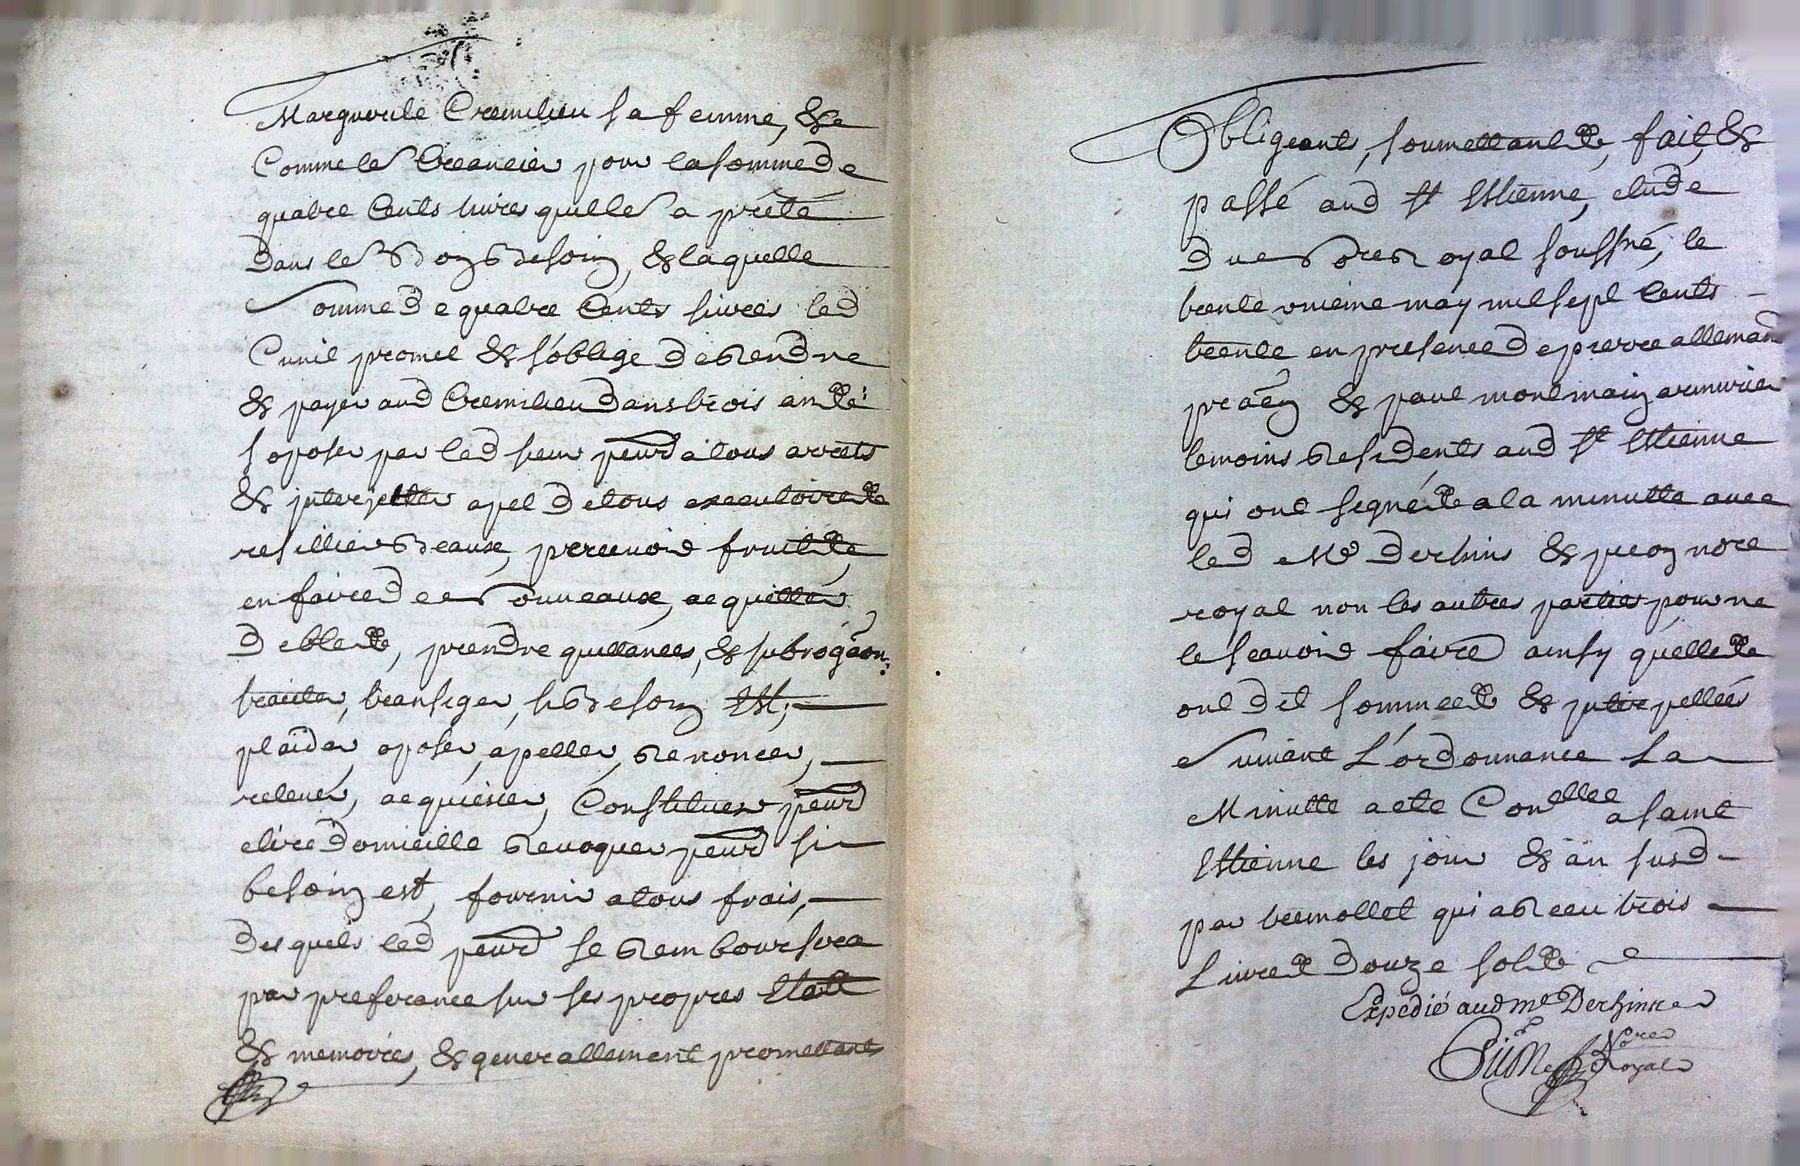 Marguerite Cremilieu sa femme, &e
Comme les Creancier pour la somme de
quatre Cents livres quelle a prété
dans les besoin, & laquelle
Somme de quatre Cents livres led
promet & s'oblige de rendre
& payer aud Cremilieu dans trois
oposer par led sieur peurd a tous arrets
& interjetter apel de tous executoire
resillier beaux, percevoir fruit
en faire de nouveaux, acquitter
debte, prendre quittances, & subrogaon,
traitter, transiger, si besoin Est,
plaider, oposer, apeller, renoncer,
relever, acquiescer, Constituer peurd
elire domicille revoquer peurd si
besoin est, fournir a tous frais,
desquels led peurd se remboursera
par preferance sur ses propres Etatt
& memoires, & generallement promettants
Obligeants, soumettant, fait, &
passé aud St Estienne, etude
du nore royal soussné, le
trente unieme may mil sept Cents
trente en presence de pierre alleman
praén & paul montmain armurier
temoins residents aud St Estienne
qui ont segné a la minutte avec
led Me dechins & nore
royal non les autres parties pour ne
le scavoir faire ainsy quelle
ont dit sommée & interpellées
suivant L'ordonnance La
Minutte a ete Conellée a saint
Estienne les jour & an susd
par tremollet qui a receu trois
Livre douze sols
Expedié aud Me
Nore
Royal